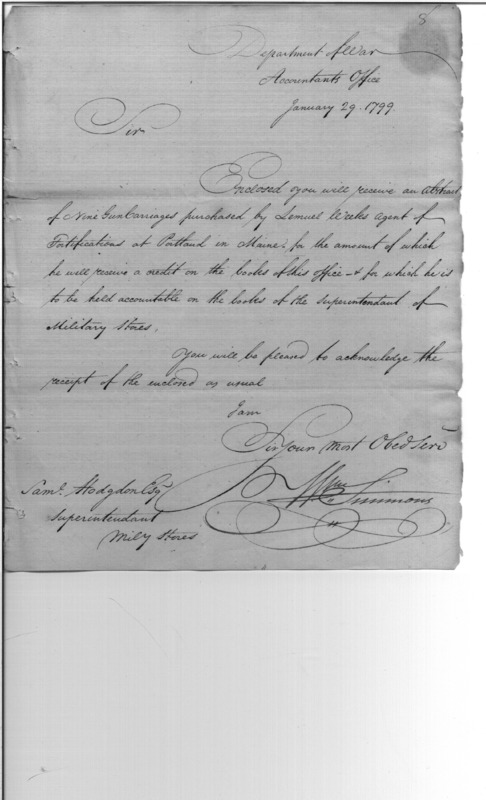 8
Department of War
Accountants Office
January 29. 1799.
Sir
Enclosed you will receive an Abstract
of Nine Gun Carriages purchased by Lemuel Weeks agent of
Fortifications at Portland in Maine, for the amount of which
he will receive a credit on the books of this office & for which he is
to be held accountable on the books of the Superintendant of
Military Stores.
You will be pleased to acknowledge the
receipt of the enclosed as usual
I am
Sir Your Most Obed Serv
Wm Simmons
Saml. Hodgdon Esqr
Superintendant
Mily Stores